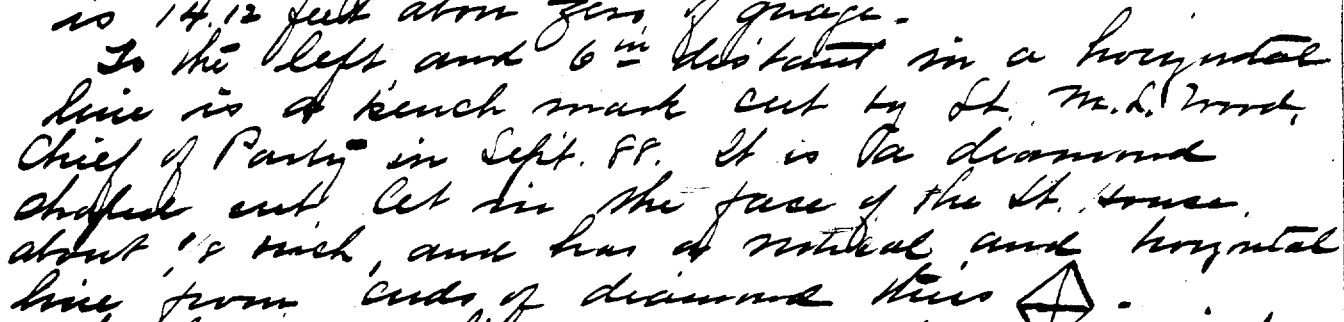 is 14.12 feet above zero of guage.
To the left and 6 in distant in a horizontal
line is a bench mark cut by Lt. M.L. Wood,
Chief of Party in Sept. 88. It is a diamond
shaped cut set in the face of the Lt. House
about 1/8 inch, and has a vertical and horizontal
line from ends of diamond thus